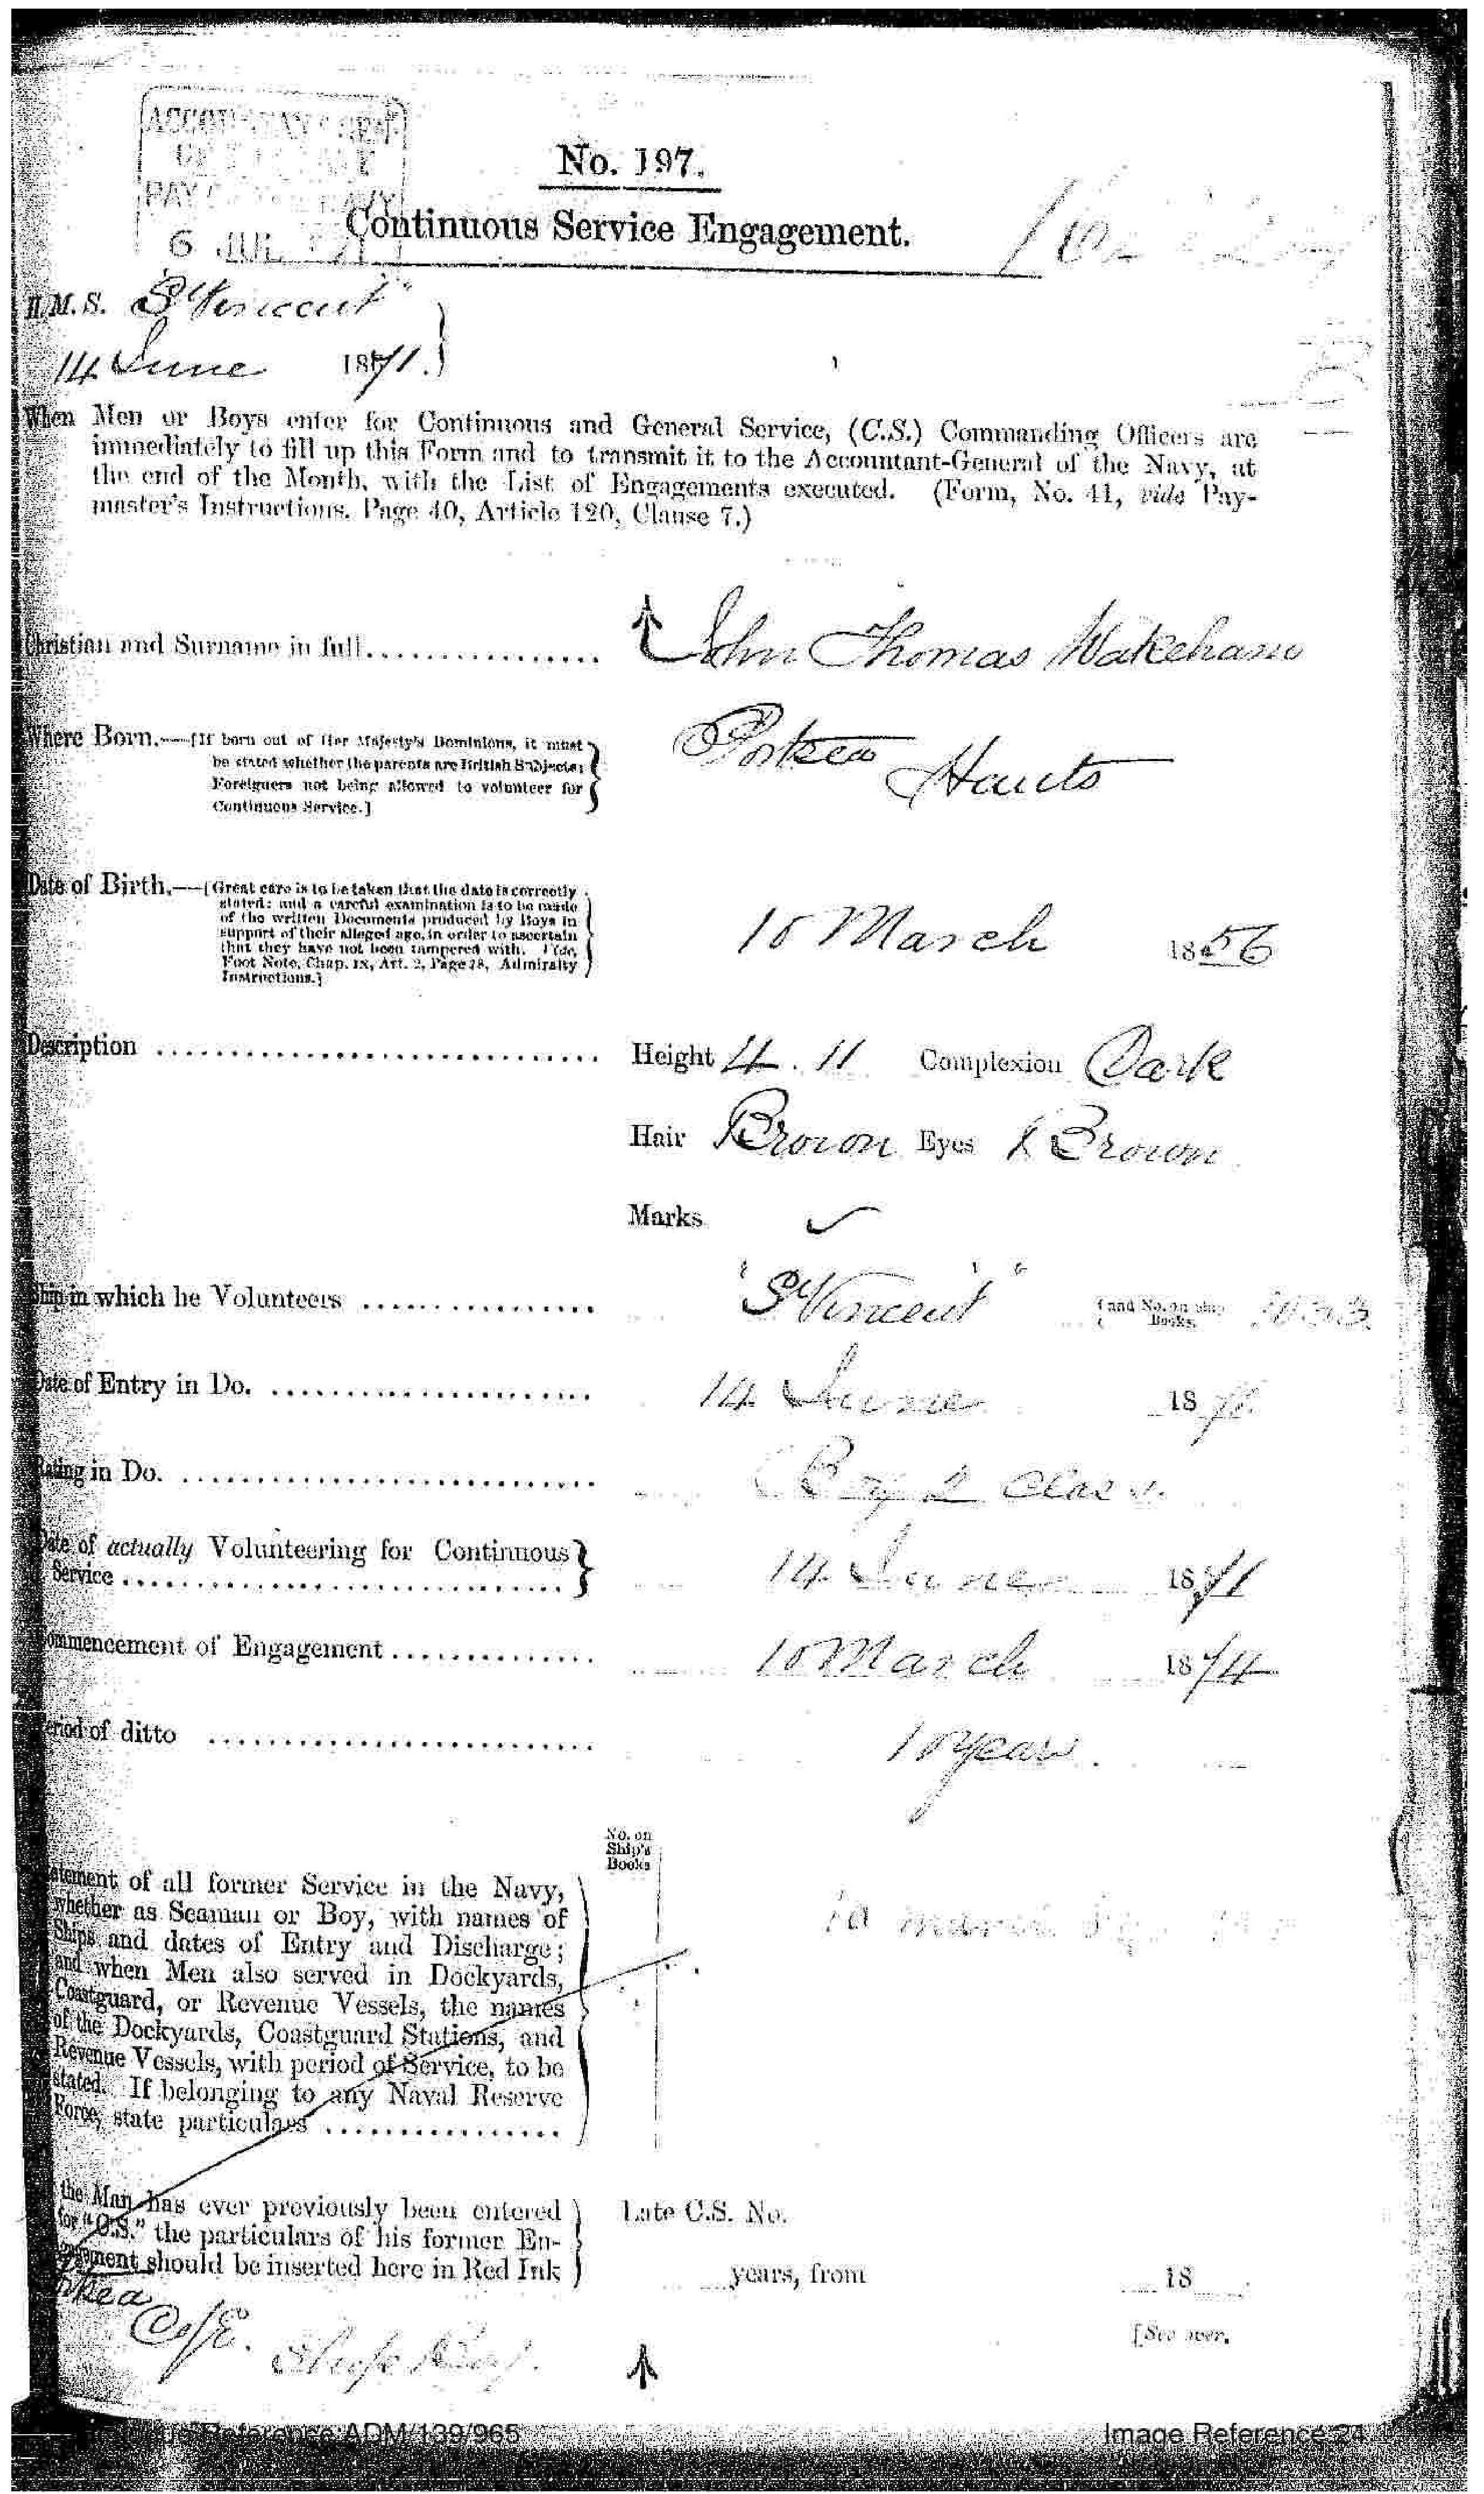 No. 197.
Continuous Service Engagement.
6 JUL 71
H.M.S. "St Vincent"
14 June 1871.
When Men or Boys enter for Continuous and General Service, (C.S.) Commanding Officers are
immediately to fill up this Form and to transmit it to the Accountant-General of the Navy, at
the end of the Month, with the List of Engagements executed. (Form, No. 41, vide Pay-
master's Instructions. Page 40, Article 120, Clause 7.)
Christian and Surname in full................ John Thomas Wakeham
Where Born.—[If born out of Her Majesty's Dominions, it must
be stated whether the parents are British Subjects;
Foreigners not being allowed to volunteer for
Continuous Service.]
Portsea Hants
Date of Birth.—[Great care is to be taken that the date is correctly
stated: and a careful examination is to be made
of the written Documents produced by Boys in
support of their alleged age, in order to ascertain
that they have not been tampered with. Vide,
Foot Note, Chap. IX, Art. 2, Page 28, Admiralty
Instructions.]
10 March 1856
Description .............................. Height 4. 11 Complexion Dark
Hair Brown Eyes Brown
Marks
Ship in which he Volunteers ................ "St Vincent" {and No. on ship Books.
Date of Entry in Do. ...................... 14 June 1871.
Rating in Do. ............................ Boy 2 Class.
Date of actually Volunteering for Continuous
Service .............................. 14 June 1871
Commencement of Engagement .............. 10 March 1874
Period of ditto .......................... 10 years.
No. on
Ship's
Books
Statement of all former Service in the Navy,
whether as Seaman or Boy, with names of
Ships and dates of Entry and Discharge;
and when Men also served in Dockyards,
Coastguard, or Revenue Vessels, the names
of the Dockyards, Coastguard Stations, and
Revenue Vessels, with period of Service, to be
stated. If belonging to any Naval Reserve
Force, state particulars ................
the Man has ever previously been entered
for "C.S." the particulars of his former En-
gagement should be inserted here in Red Ink
Late C.S. No.
years, from 18
C of E.
[See over.
Reference:ADM/139/965
Image Reference:24